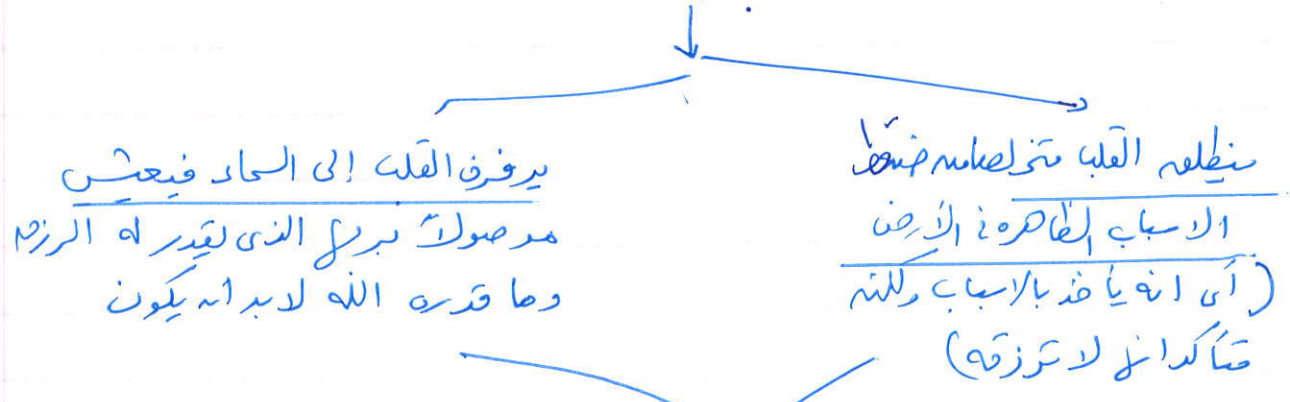 ينطلق القلب متخلصا من ضغط
الاسباب الظاهرة فى الأرض
(أى انه يأخذ بالاسباب ولكنه
متأكد انها لا ترزقه)
يرفرف القلب إلى السماء فيعيش
موصولاً بربها الذى يقدر له الرزق
وما قدره الله لابد أن يكون